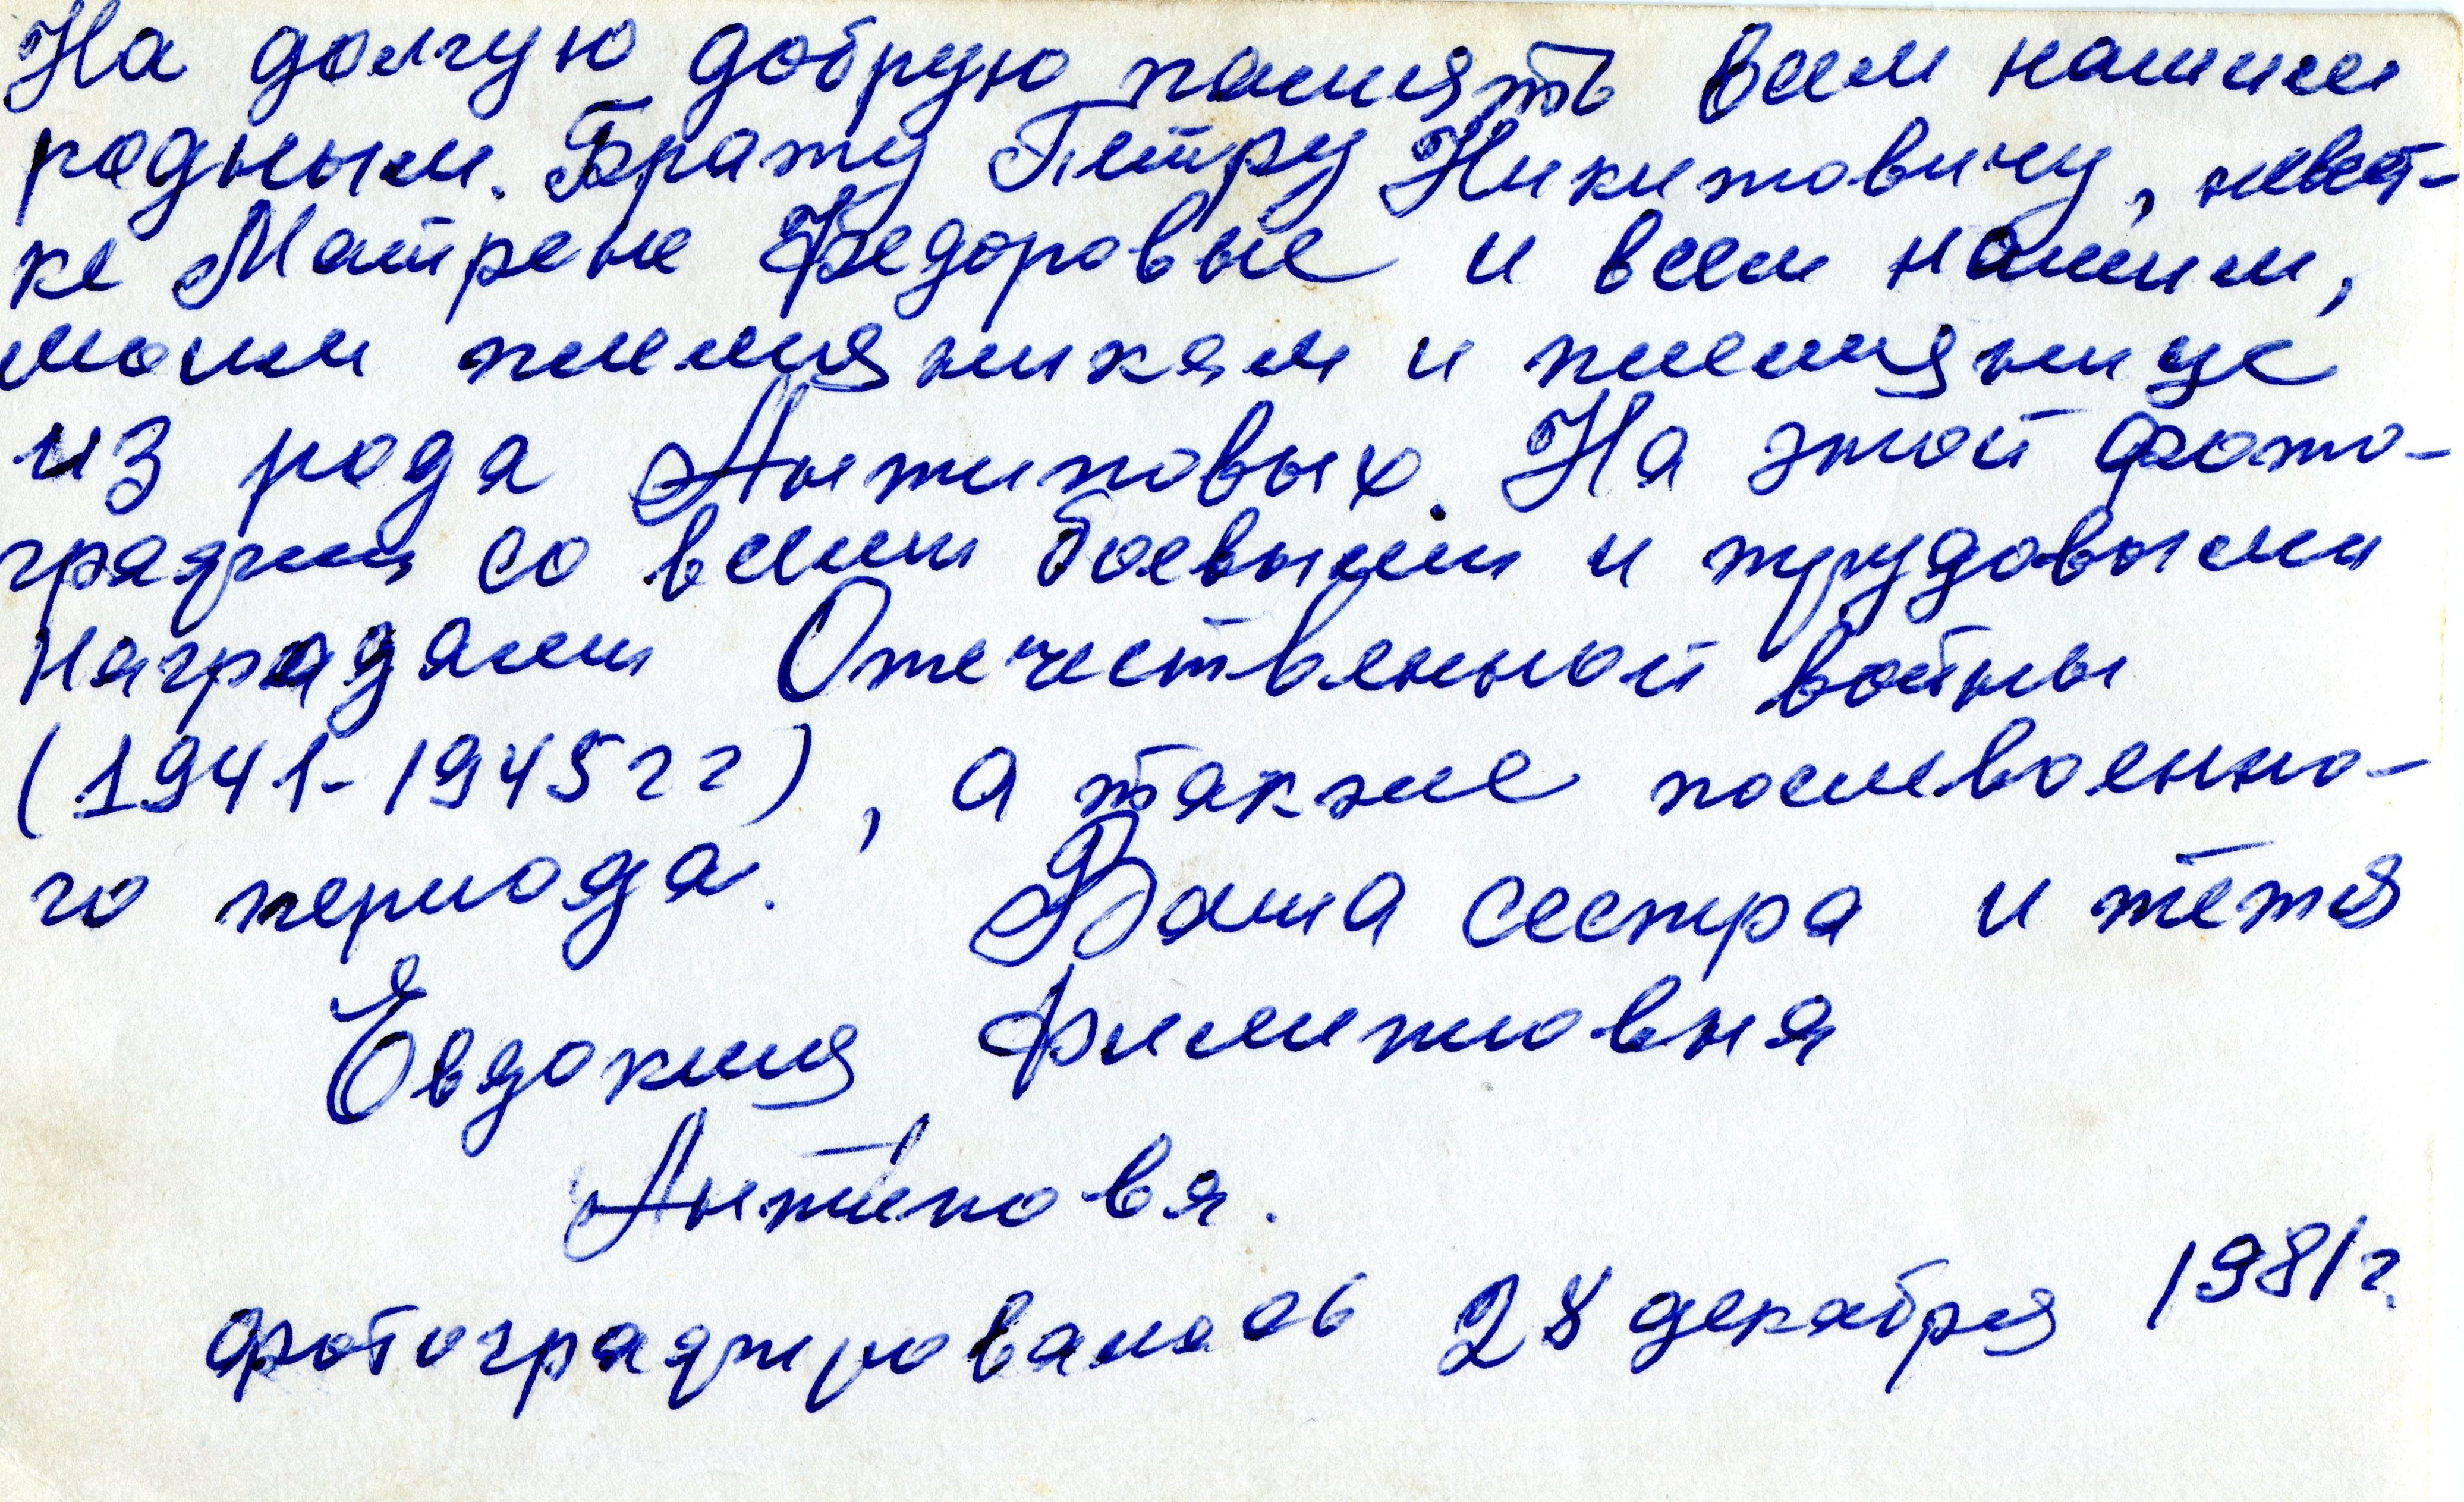 На долгую добрую память всем нашим
родным. Брату Петру Никитовичу, невест-
ке Матрене Федоровне и всем нашим,
моим племяникам и племянице
из рода Антиповых. На этой фото-
графии со всеми боевыми и трудовыми
наградами Отечественной войны
(1941-1945гг), а также послевоенно-
го периода. Ваша сестра и тётя
Евдокия Филиповна
Антипова.
фотографировалась 28 декабря 1981г.